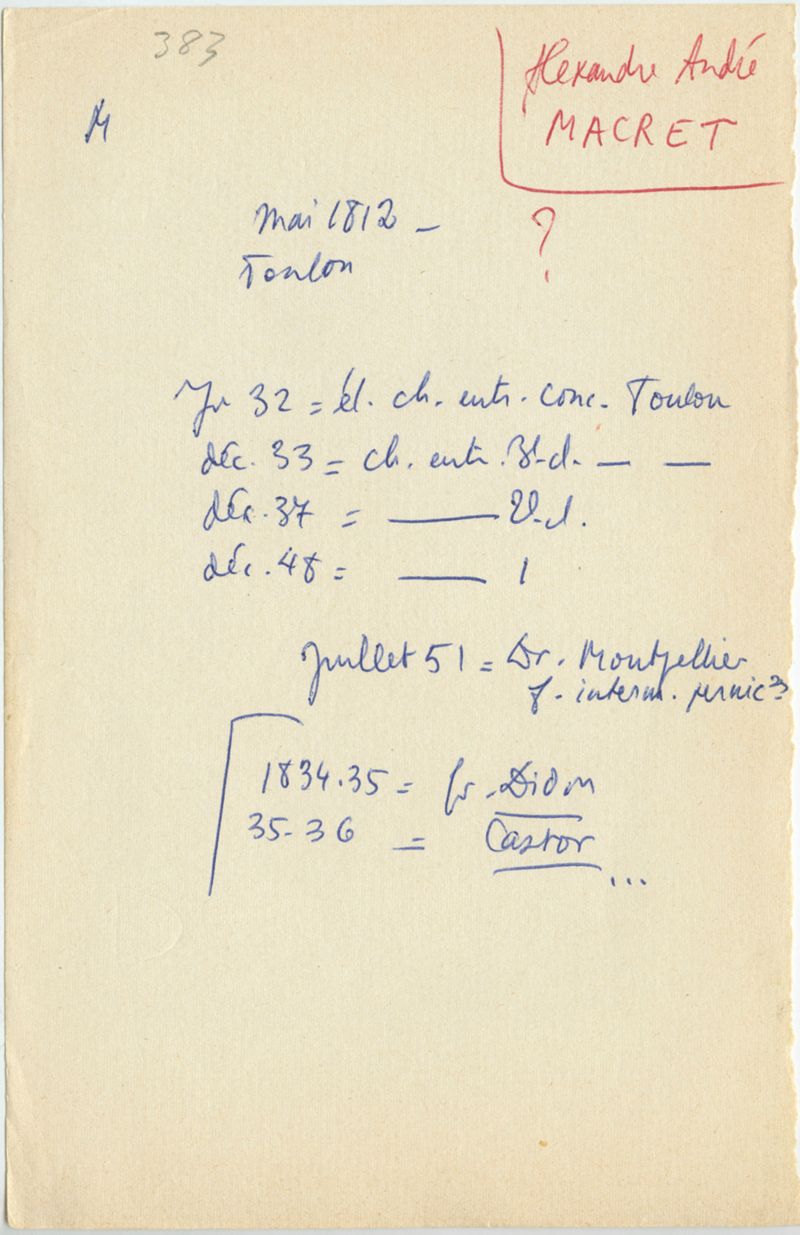 383
M
Alexandre André
MACRET
?
mai 1812 –
Toulon
Jr 32 = él. ch. entr. conc. Toulon
déc. 33 = ch. entr. 3è cl. — —
déc. 37 = —— 2è cl.
déc. 48 = —— 1
Juillet 51 = Dr. Montpellier
f. interm. pernic.
1834.35 = fr. Didon
35-36 = Castor
...